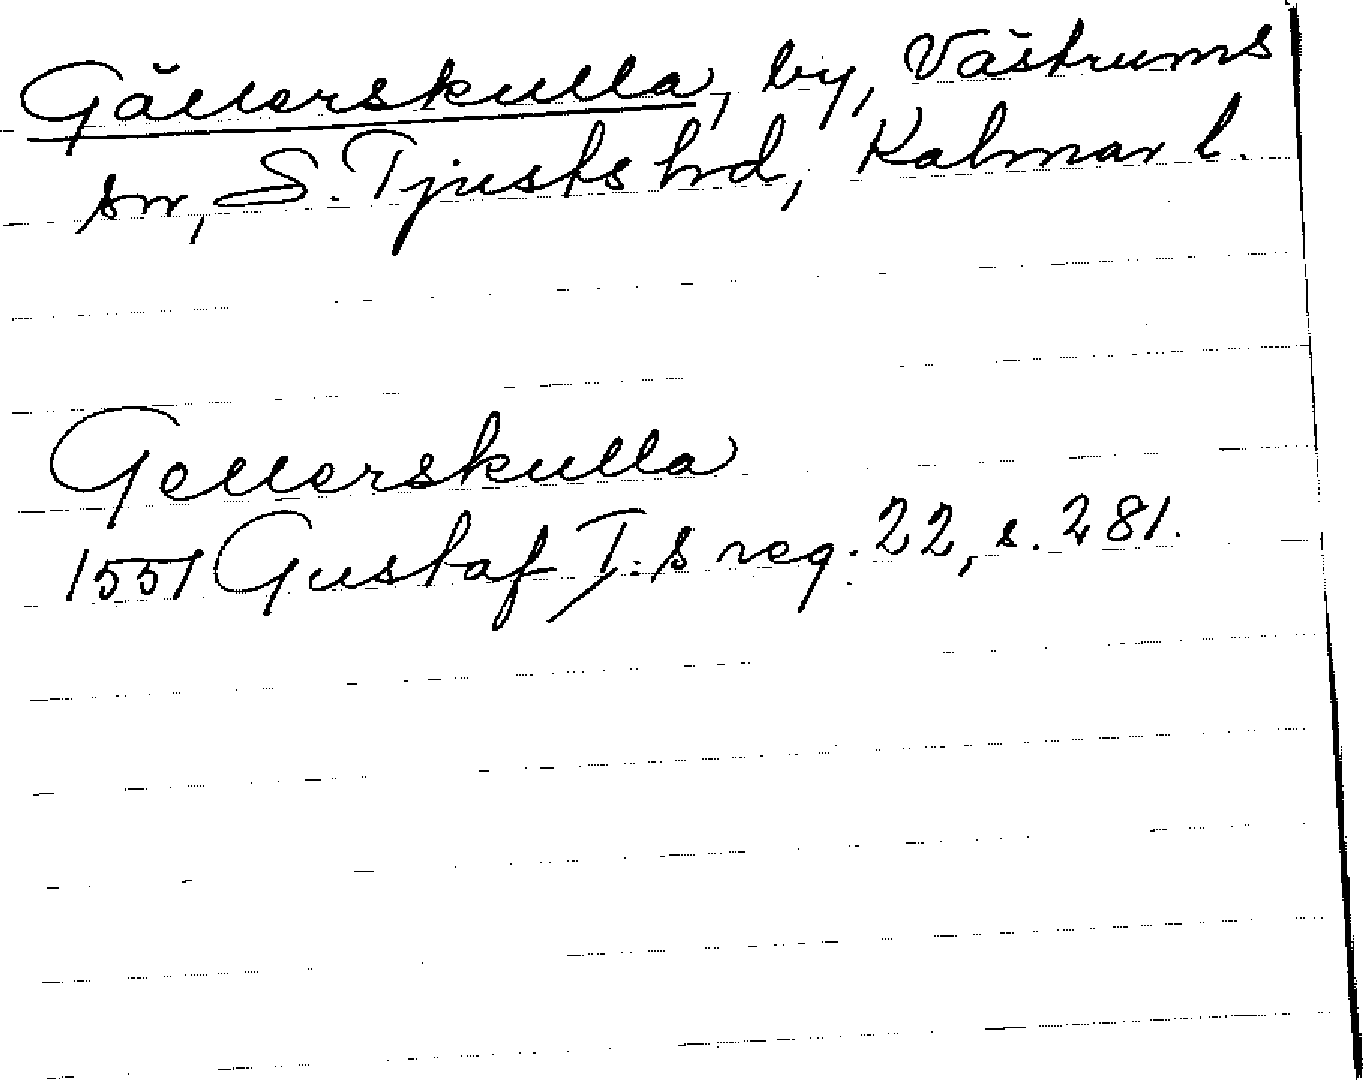 Gällerskulla, by, Västrums
sn, S. Tjusts hrd, Kalmar l.
Gellerskulla
1551 Gustaf I:s reg. 22, s. 281.